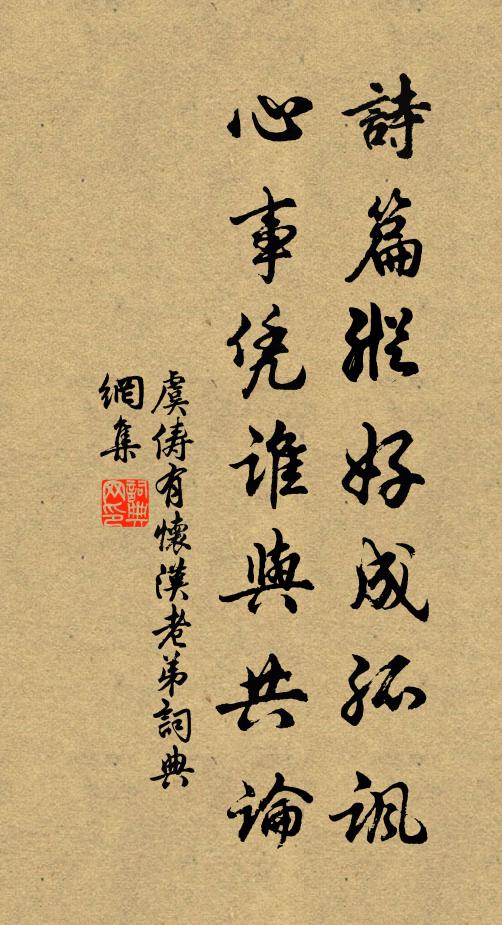 詩篇縱好成孤諷
心事凭誰與共論
虞儔有懷漢老弟詞典
網集
詞典
网印